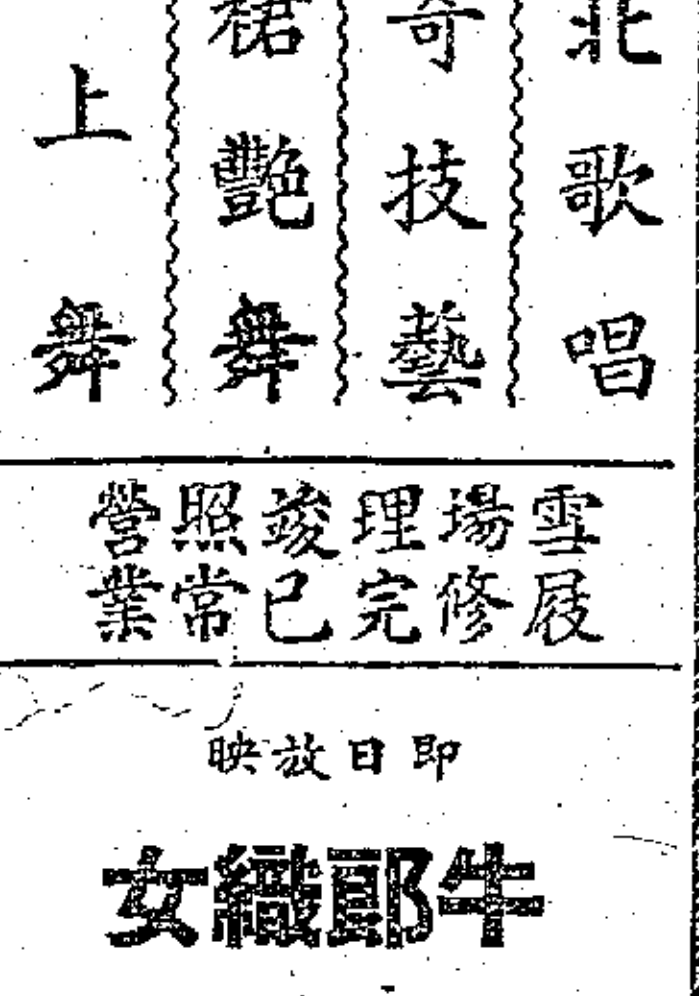 北歌唱
奇技藝
裙艷舞
上舞
雪屐
場修
理完
竣已
照常
營業
即日放映
牛郎織女